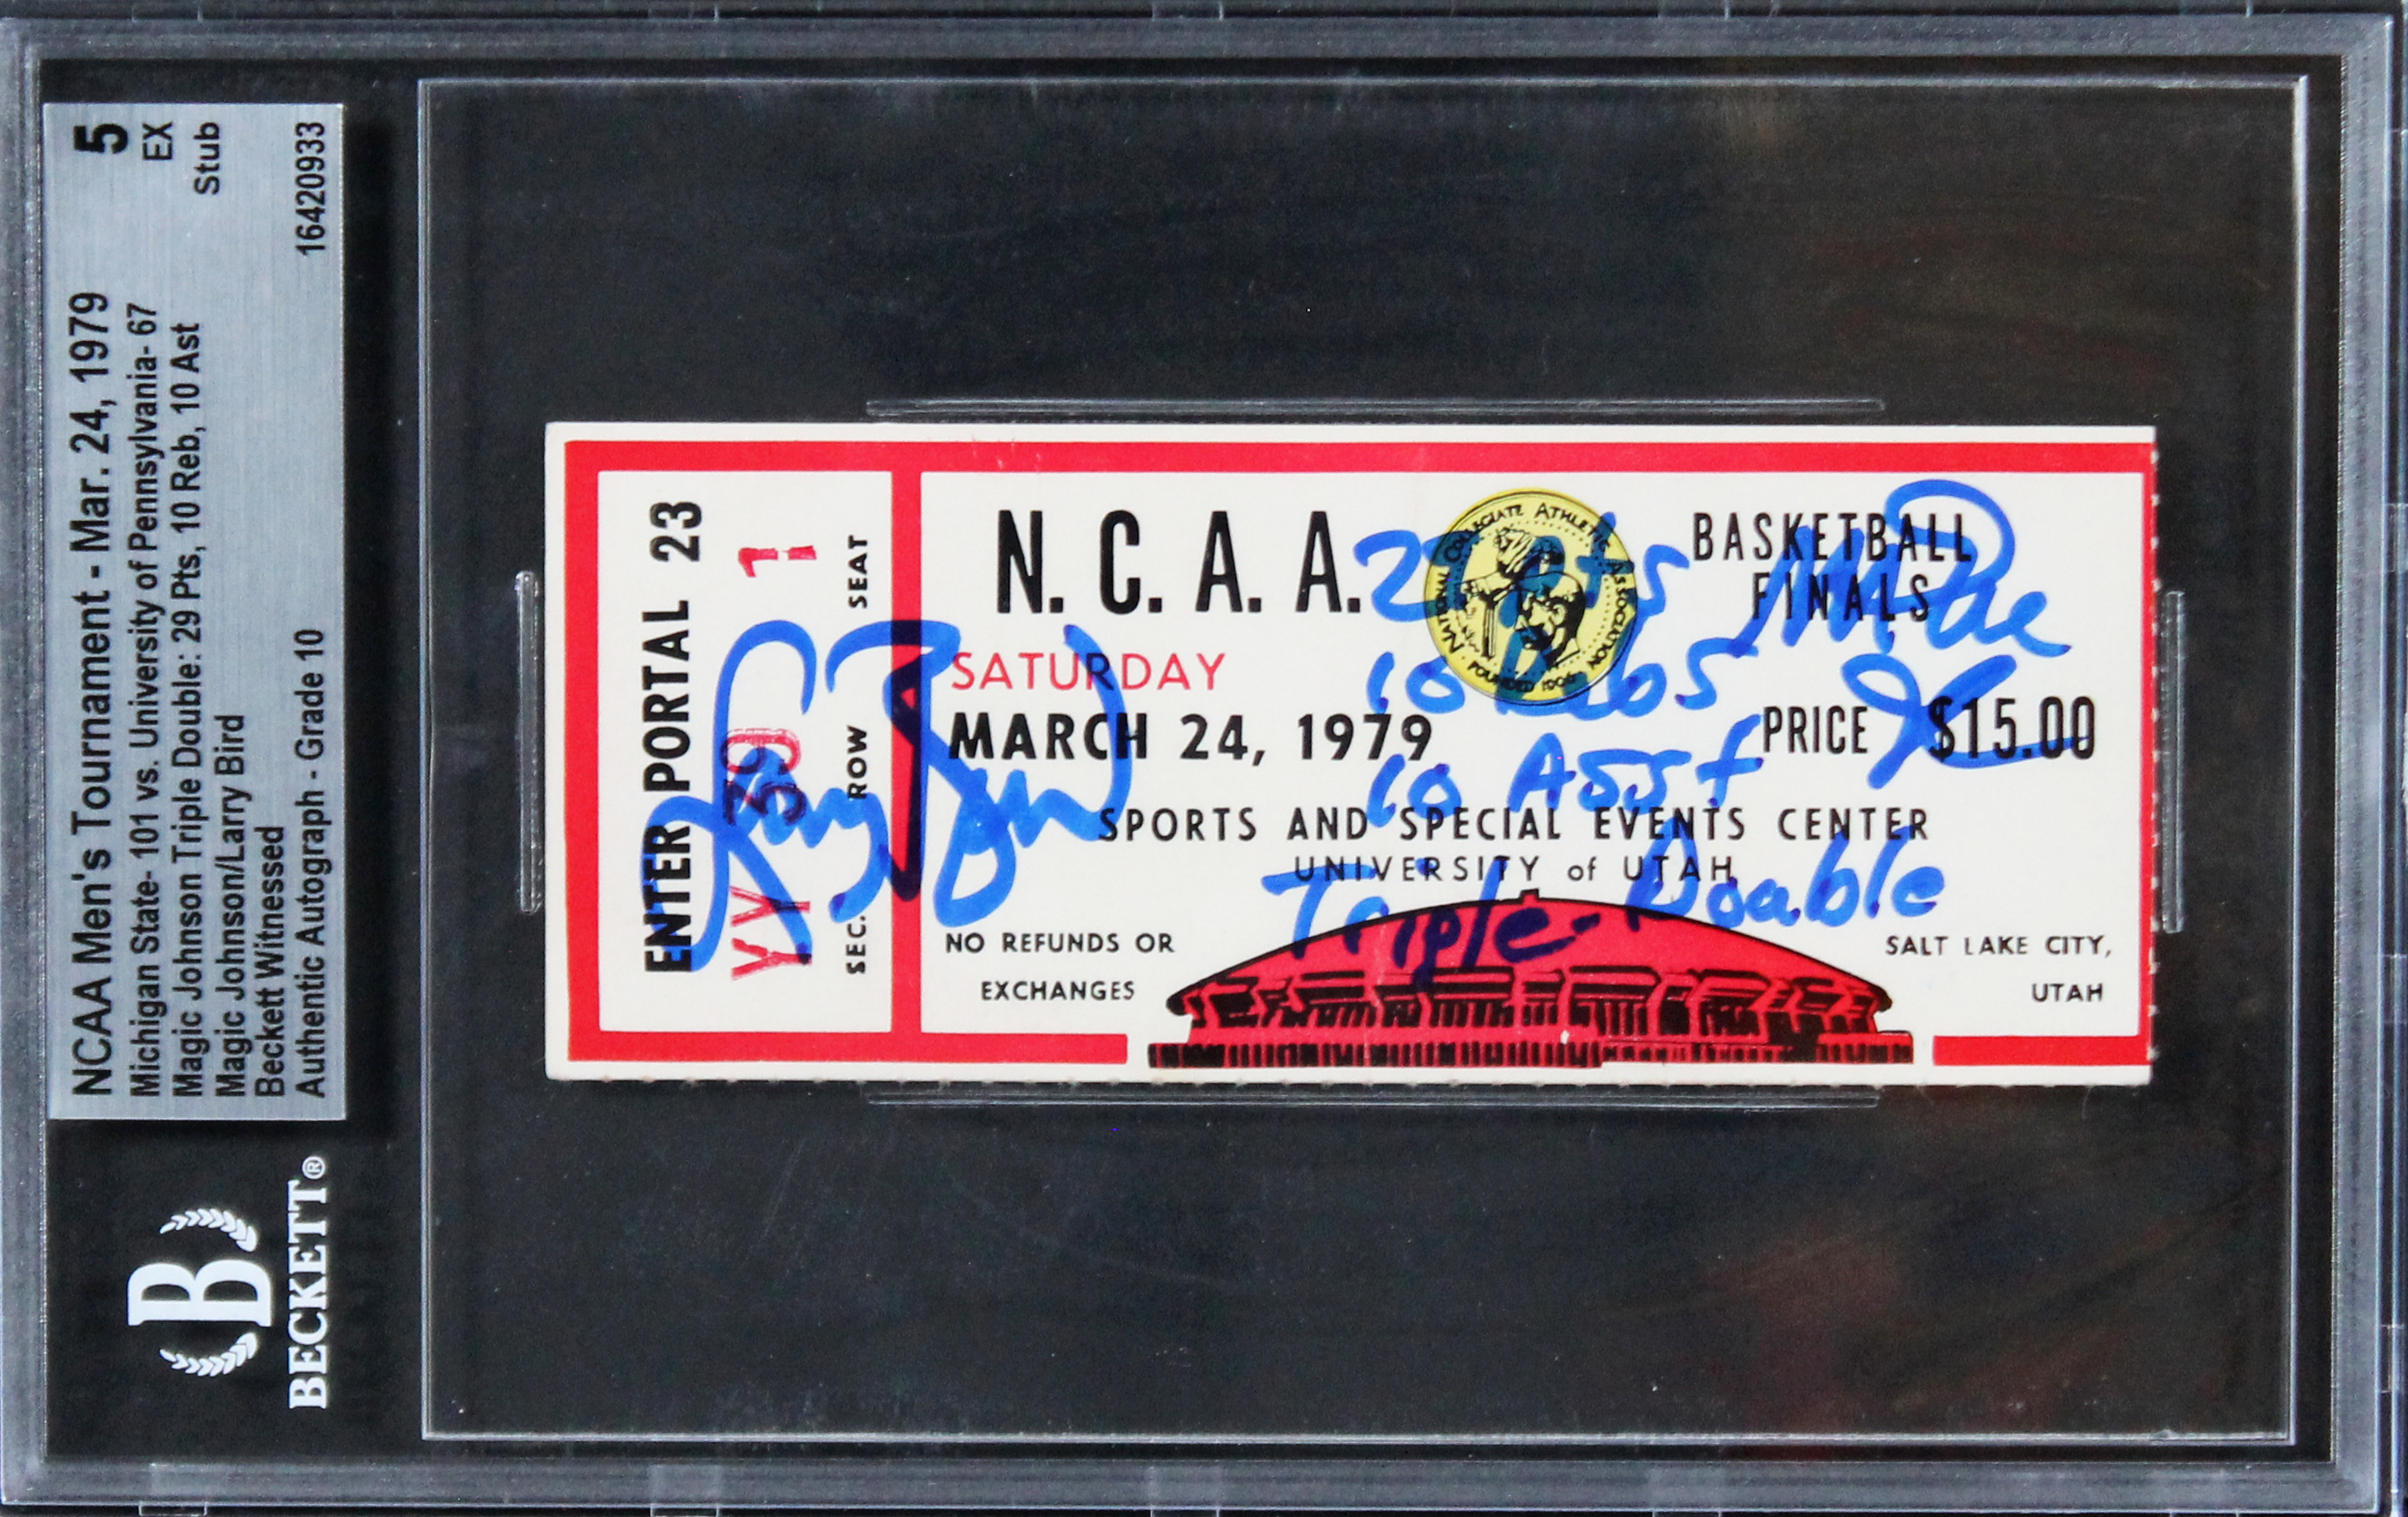 NCAA Men's Tournament - Mar. 24, 1979
Michigan State- 101 vs. University of Pennsylvania- 67
Magic Johnson Triple Double: 29 Pts, 10 Reb, 10 Ast
Magic Johnson/Larry Bird
Beckett Witnessed
Authentic Autograph - Grade 10
5
EX
Stub
16420933
B
BECKETT®
ENTER PORTAL 23
YY 39 1
SEC. ROW SEAT
N. C. A. A.
NATIONAL COLLEGIATE ATHLETIC ASSOCIATION
FOUNDED 1906
BASKETBALL
FINALS
SATURDAY
MARCH 24, 1979
PRICE $15.00
SPORTS AND SPECIAL EVENTS CENTER
UNIVERSITY of UTAH
NO REFUNDS OR
EXCHANGES
SALT LAKE CITY,
UTAH
Larry Bird
10 Asst
Triple-Double